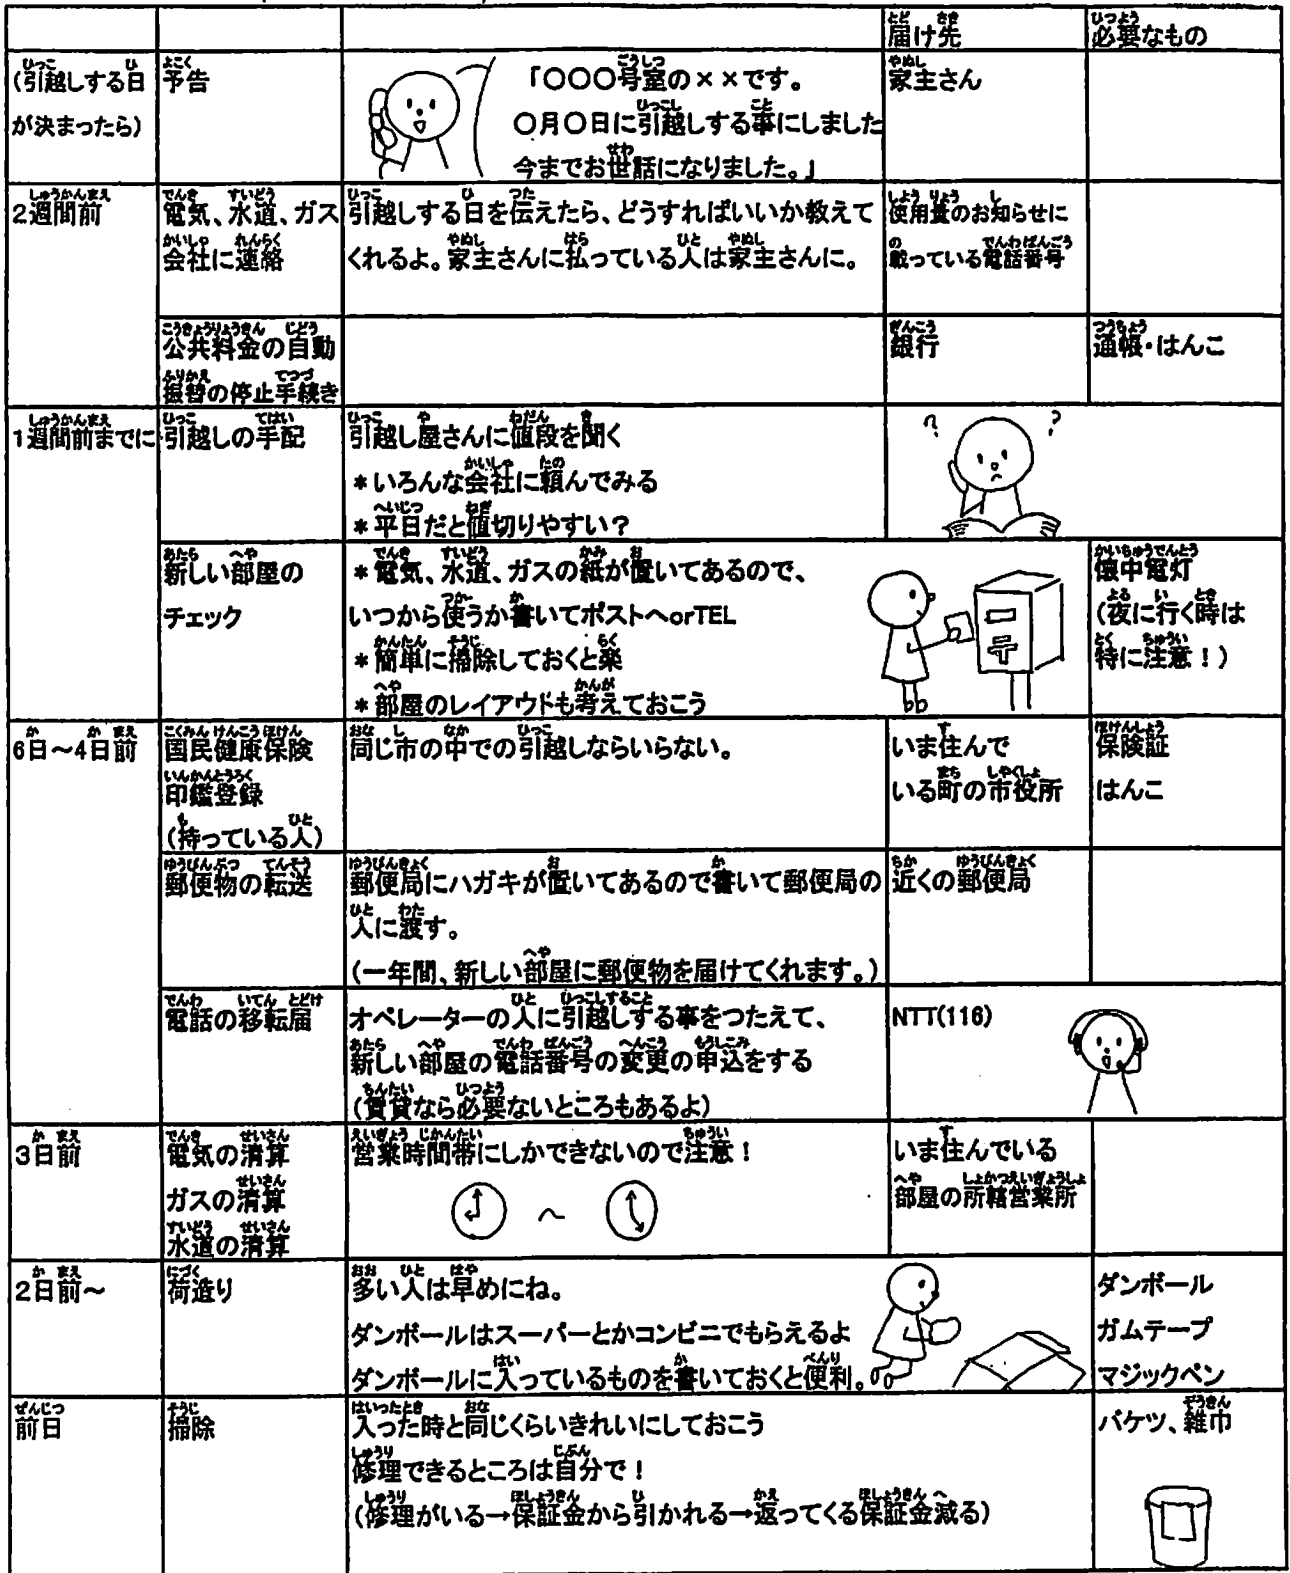 届け先
必要なもの
(引越しする日
が決まったら)
予告
「〇〇〇号室の××です。
〇月〇日に引越しする事にしました
今までお世話になりました。」
家主さん
2週間前
電気、水道、ガス
会社に連絡
引越しする日を伝えたら、どうすればいいか教えて
くれるよ。家主さんに払っている人は家主さんに。
使用量のお知らせに
載っている電話番号
公共料金の自動
振替の停止手続き
銀行
通帳・はんこ
1週間前までに
引越しの手配
引越し屋さんに値段を聞く
*いろんな会社に頼んでみる
*平日だと値切りやすい?
新しい部屋の
チェック
*電気、水道、ガスの紙が置いてあるので、
いつから使うか書いてポストへorTEL
*簡単に掃除しておくと楽
*部屋のレイアウドも考えておこう
懐中電灯
(夜に行く時は
特に注意!)
6日～4日前
国民健康保険
印鑑登録
(持っている人)
同じ市の中での引越しならいらない。
いま住んで
いる町の市役所
保険証
はんこ
郵便物の転送
郵便局にハガキが置いてあるので書いて郵便局の
人に渡す。
(一年間、新しい部屋に郵便物を届けてくれます。)
近くの郵便局
電話の移転届
オペレーターの人に引越しする事をつたえて、
新しい部屋の電話番号の変更の申込をする
(賃貸なら必要ないところもあるよ)
NTT(116)
3日前
電気の清算
ガスの清算
水道の清算
営業時間帯にしかできないので注意!
～
いま住んでいる
部屋の所轄営業所
2日前～
荷造り
多い人は早めにね。
ダンボールはスーパーとかコンビニでもらえるよ
ダンボールに入っているものを書いておくと便利。
ダンボール
ガムテープ
マジックペン
前日
掃除
入った時と同じくらいきれいにしておこう
修理できるところは自分で!
(修理がいる→保証金から引かれる→返ってくる保証金減る)
バケツ、雑巾